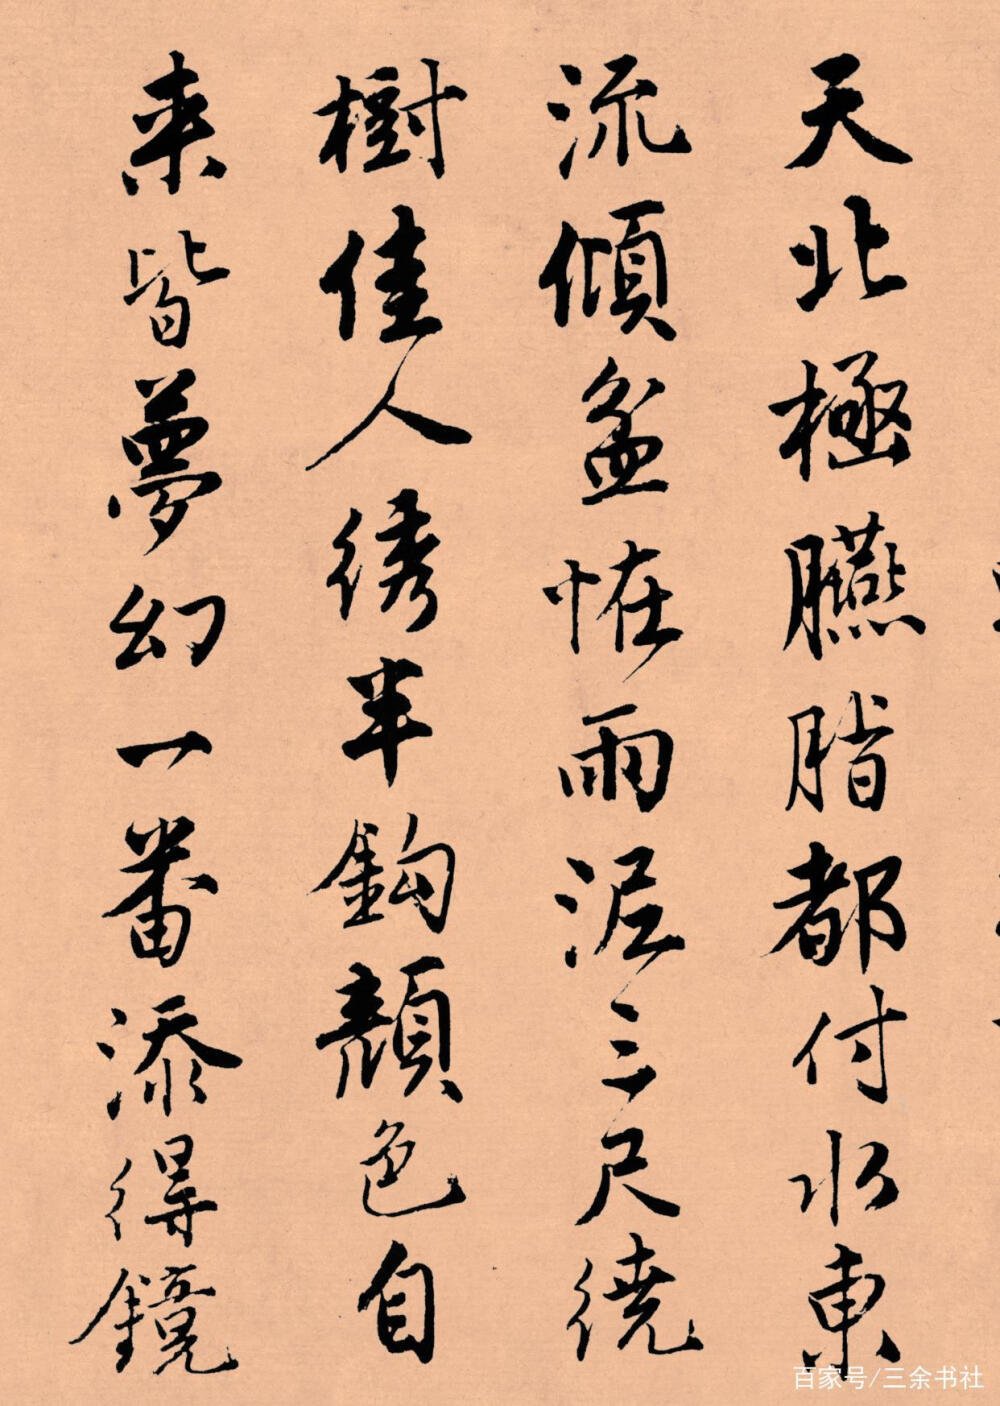 天北極臙脂都付水東
流傾盆恠雨泥三尺繞
樹佳人綉半鈎顏色自
来皆夢幻一番添得鏡
百家号/三余书社